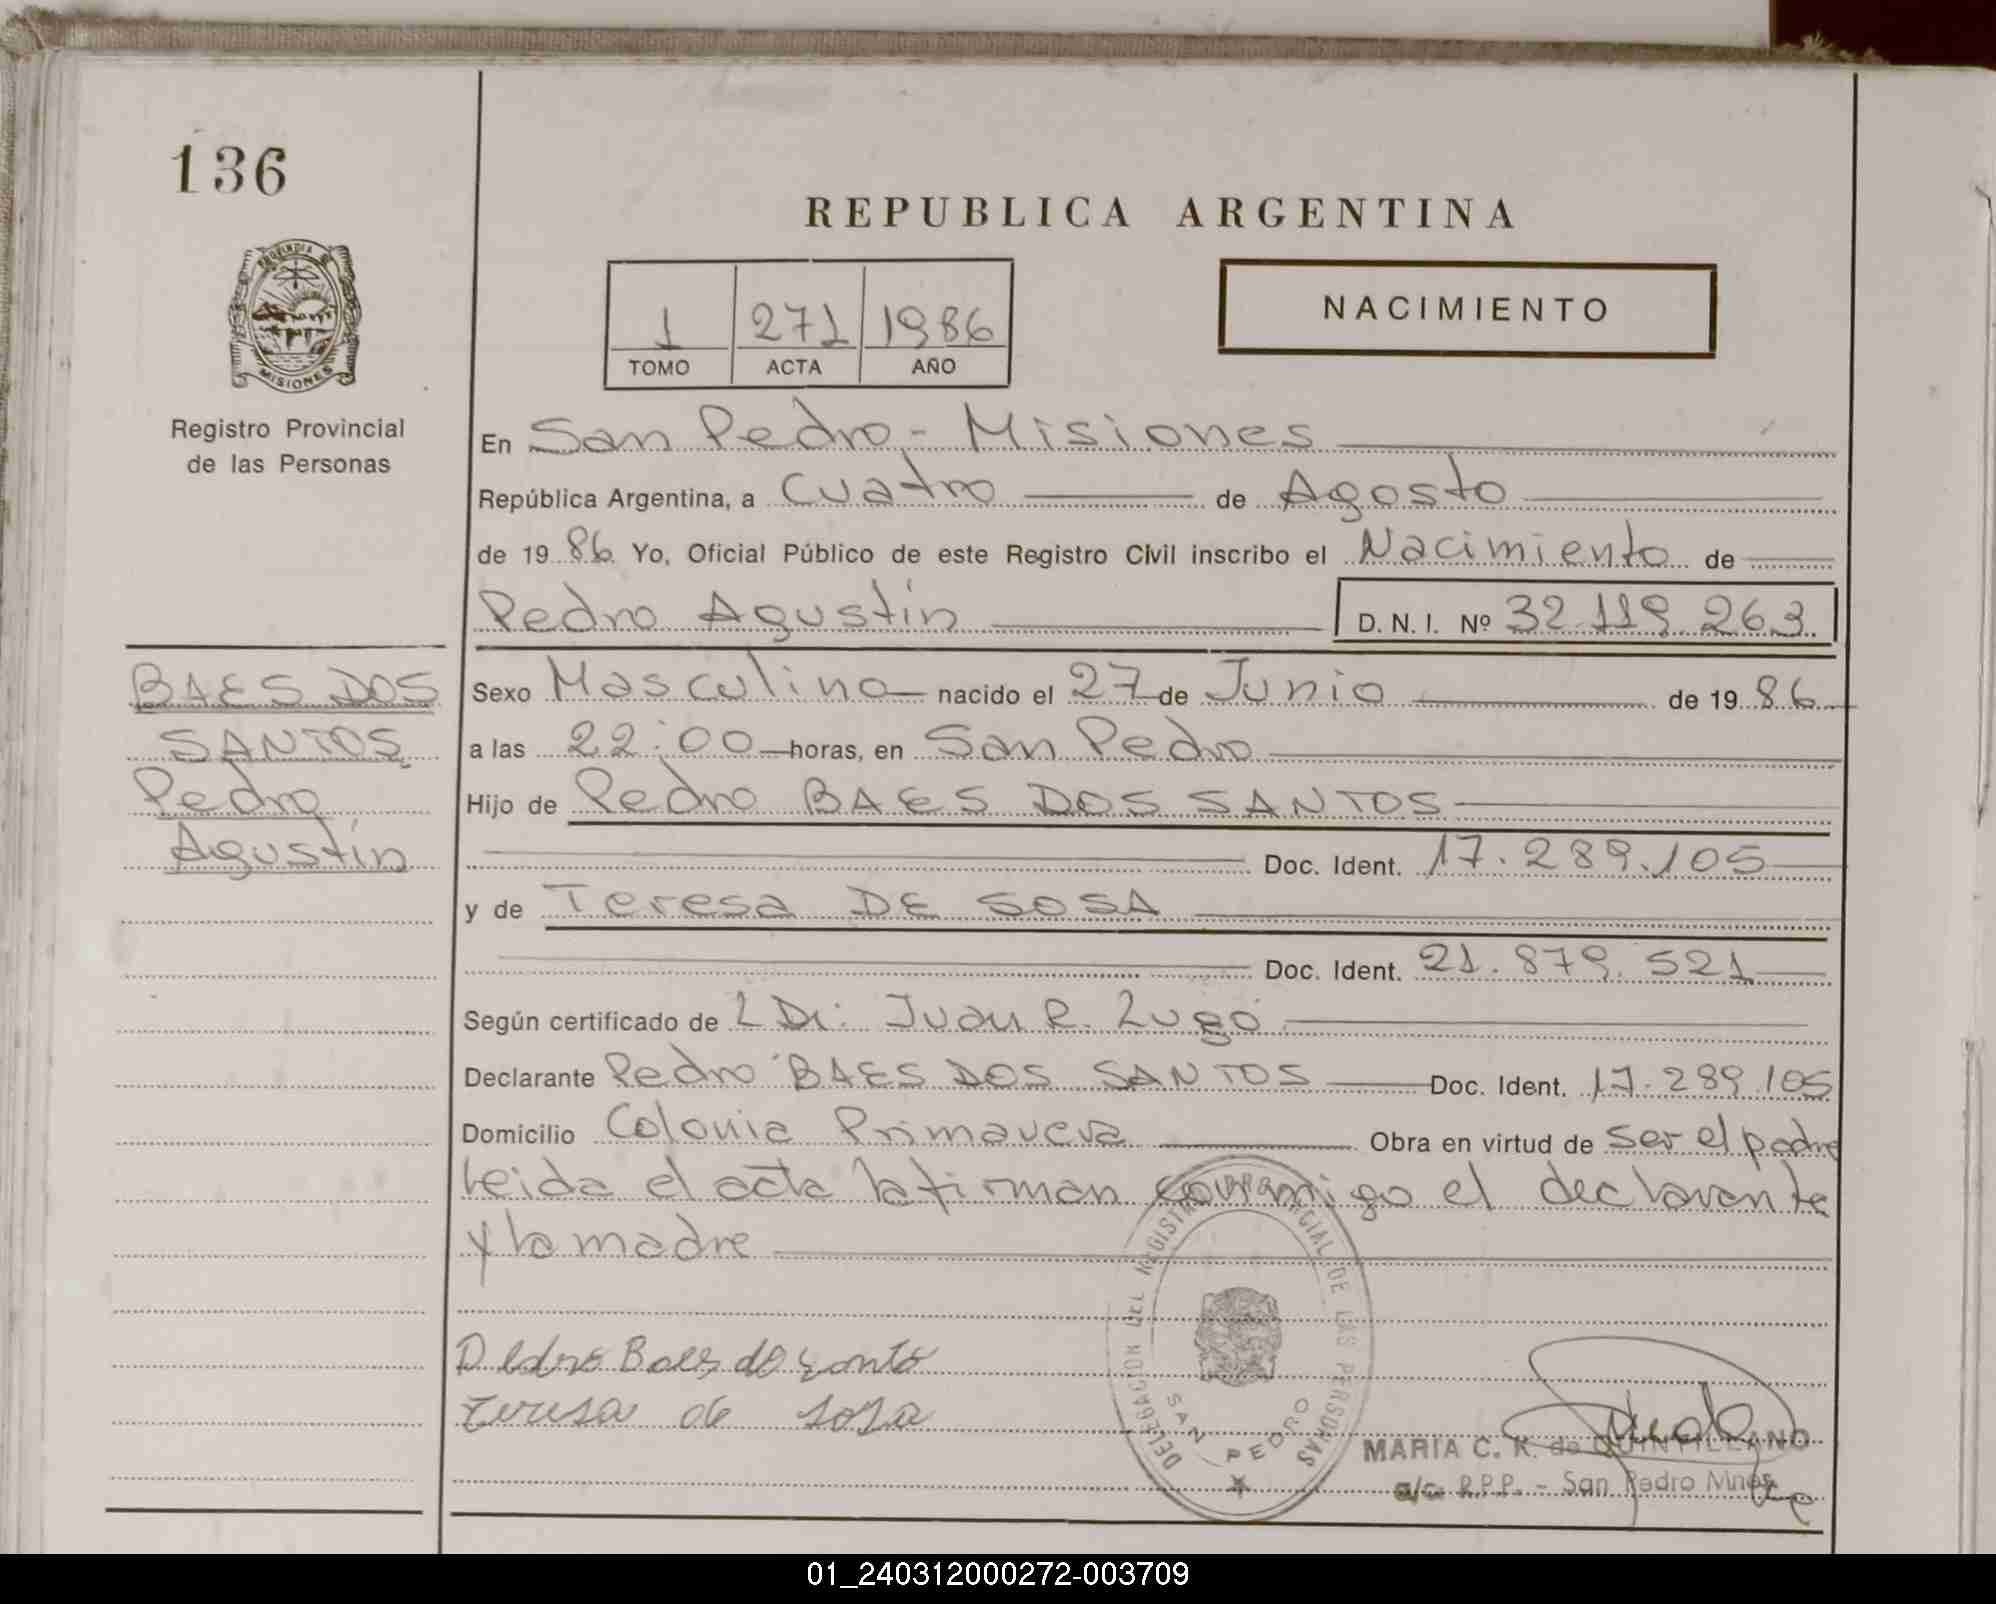 136
REPUBLICA ARGENTINA
PROVINCIA DE
MISIONES
Registro Provincial
de las Personas
NACIMIENTO
1 271 1986
TOMO ACTA AÑO
En San Pedro - Misiones
República Argentina, a Cuatro de Agosto
de 1986 Yo, Oficial Público de este Registro Civil inscribo el Nacimiento de
Pedro Agustín D. N. I. Nº 32.119.263
BAES DOS
SANTOS
Pedro
Agustín
Sexo Masculino nacido el 27 de Junio de 1986
a las 22:00 horas, en San Pedro
Hijo de Pedro BAES DOS SANTOS
Doc. Ident. 17.289.105
y de Teresa DE SOSA
Doc. Ident. 21.879.521
Según certificado de Dr. Juan R. Lugo
Declarante Pedro BAES DOS SANTOS Doc. Ident. 17.289.105
Domicilio Colonia Primavera Obra en virtud de ser el padre
Leida el acta la firman conmigo el declarante
y la madre
Pedro Baes do santo
Teresa de sosa
DELEGACION DEL REGISTRO PROVINCIAL DE LAS PERSONAS
SAN PEDRO
MARIA C. K. de QUINTILLANO
a/c R.P.P. - San Pedro Mnes.
01_240312000272-003709